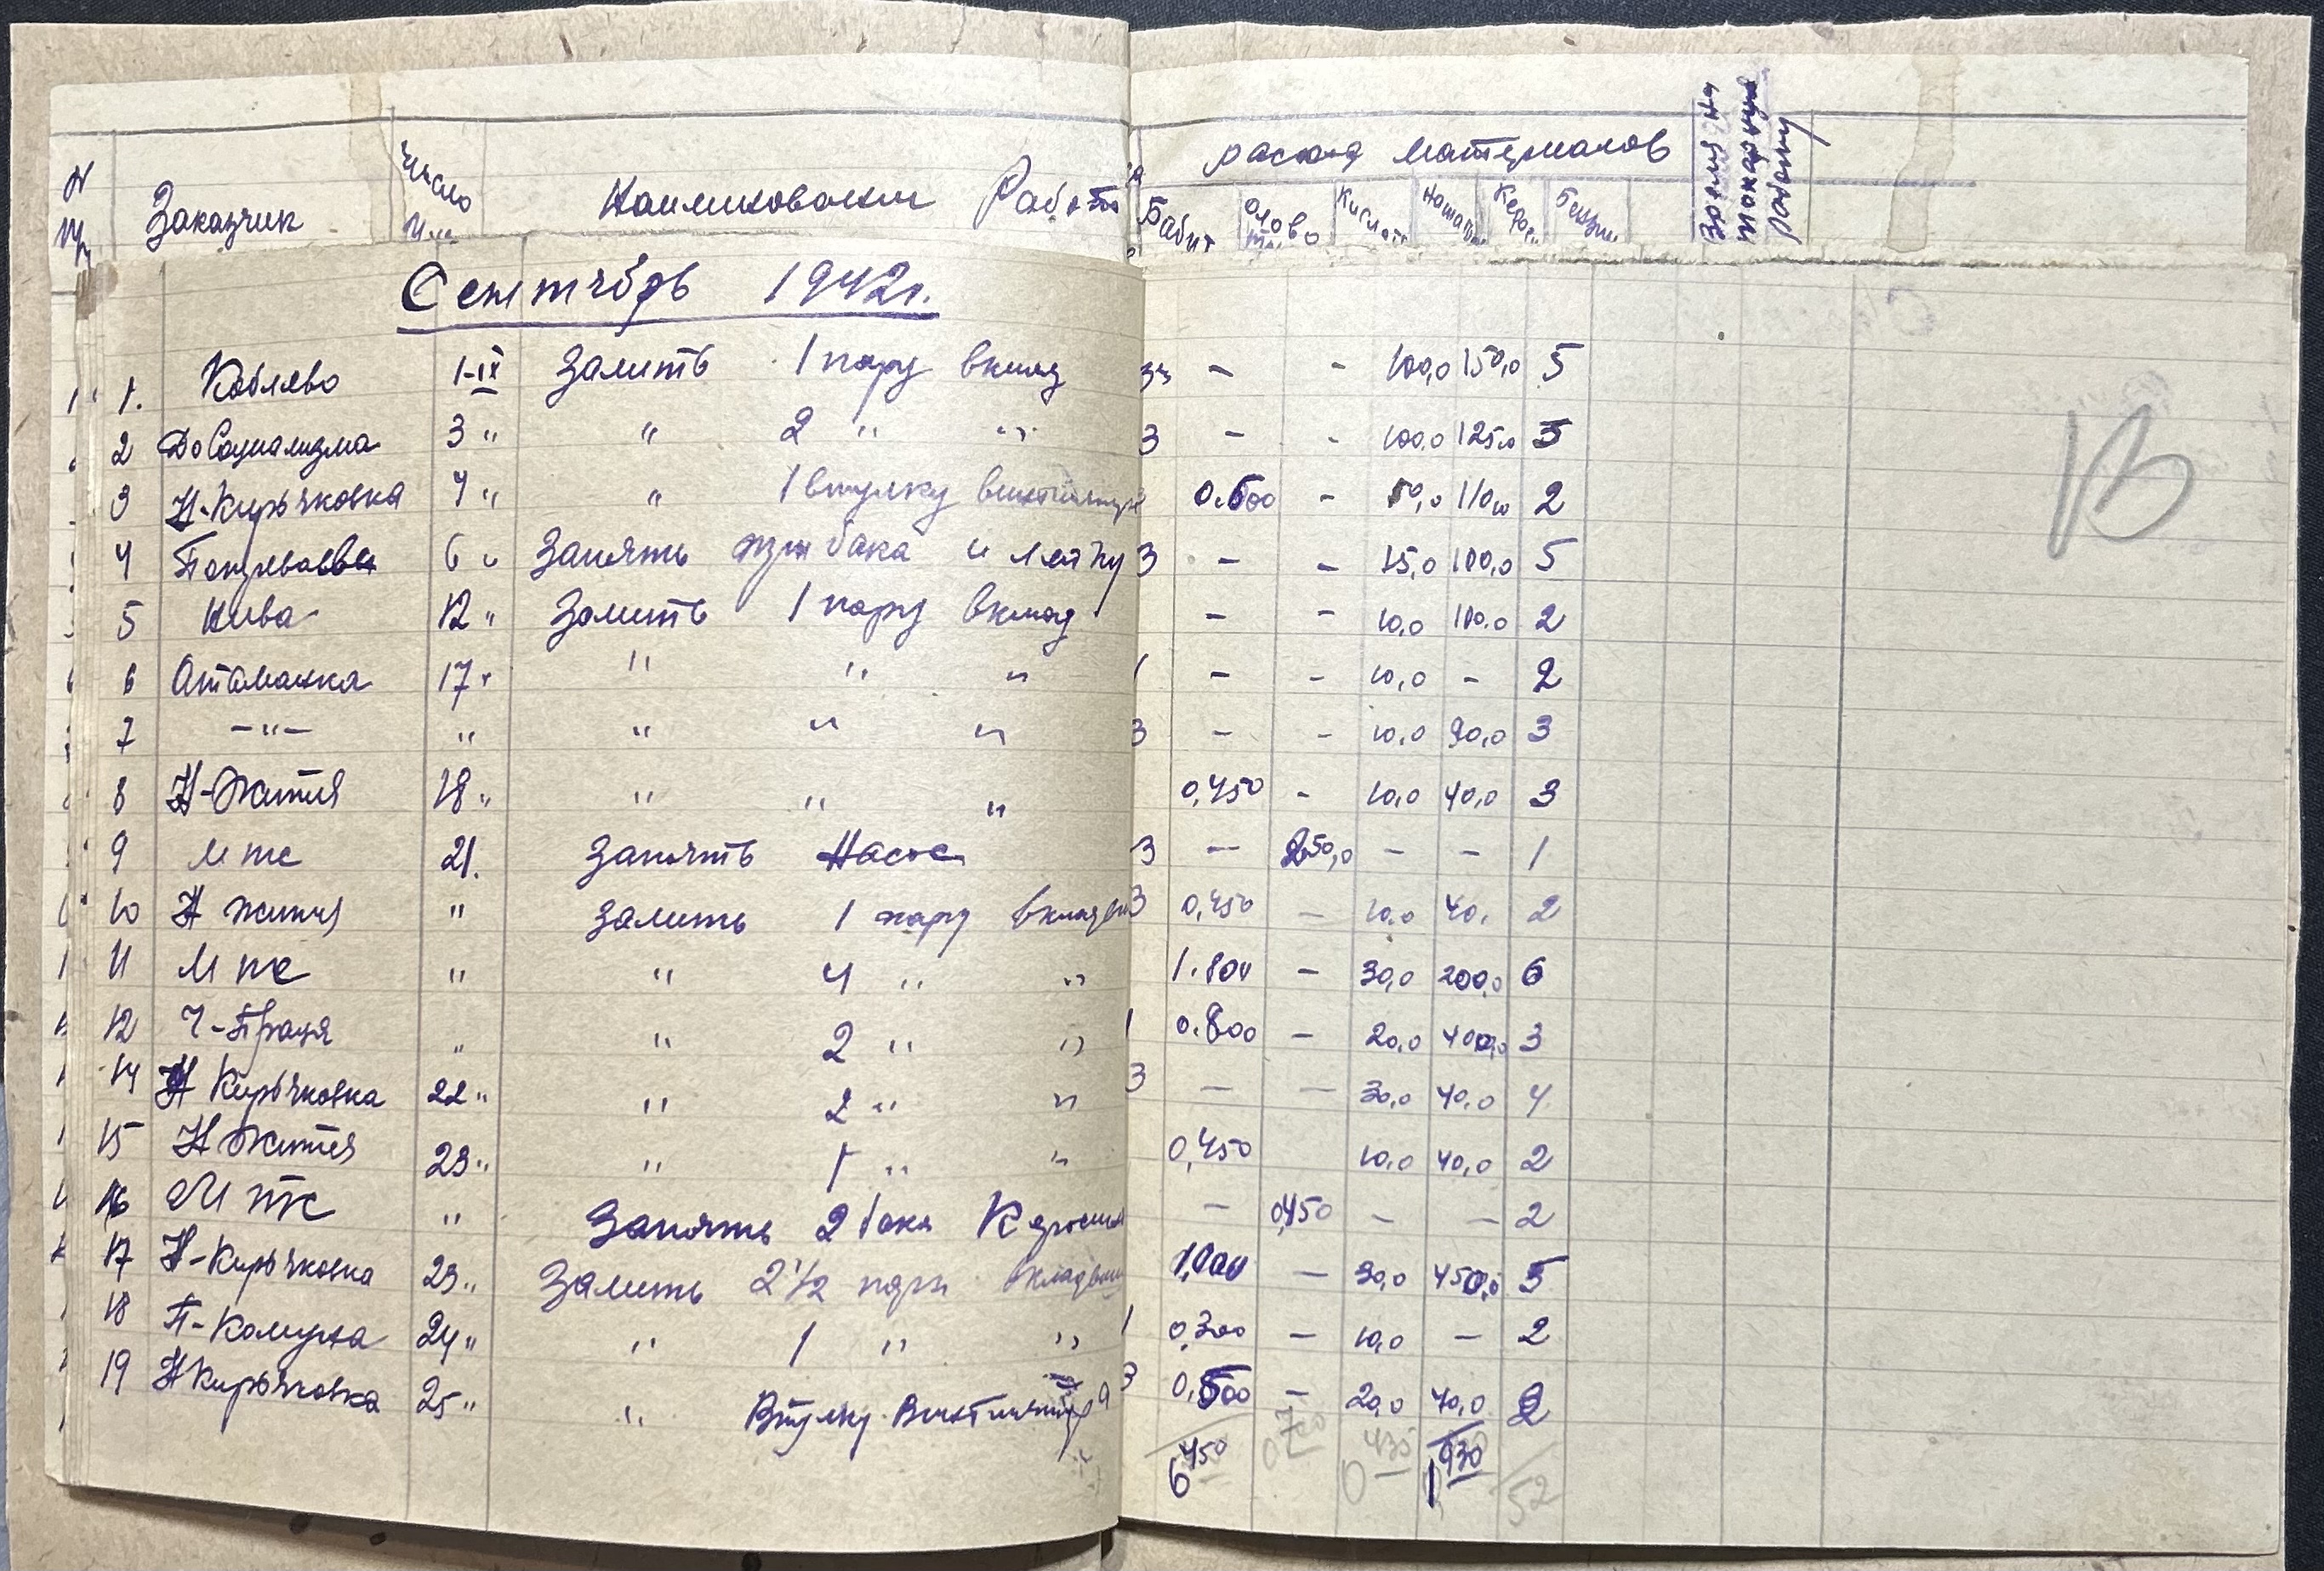 N
Заказчик
Число
Наименование Работы
расход материалов
Бабит
олово
Кислот
Нашат
Керос
Бензин
Время на токарную работу
Сентябрь 1942г.
1. Коблево 1-IX Залить 1 пару вклад - - 100,0 150,0 5
2 До Социализма 3 " " 2 " " 3 - - 100,0 125,0 5
3 Н-Кирьяковка 4 " " 1 втулку 0.500 - 50,0 110,0 2
4 6 " Запаять бака и лейку 3 - - 15,0 100,0 5
5 Нива 12 " Залить 1 пару вклад - - 10,0 100,0 2
6 Атаманка 17 " " " " - - 10,0 - 2
7 -"- " " " " 3 - - 10,0 90,0 3
8 Н-Життя 18 " " " " 0,450 - 10,0 40,0 3
9 Мтс 21. Запаять Насос 3 - 250,0 - - 1
10 Н життя " Залить 1 пару 3 0,450 - 10,0 40, 2
11 Мтс " " 4 " " 1.800 - 30,0 200,0 6
12 Ч-Праця " " 2 " " 0.800 - 20,0 400,0 3
14 Н Кирьяковка 22 " " 2 " " 3 - - 30,0 40,0 4
15 Н Життя 23 " " 1 " " 0,450 10,0 40,0 2
16 Мтс " Запаять 2 бака - 0,450 - - 2
17 Н-Кирьяковка 23 " Залить 2 1/2 пары 1,000 - 30,0 450,0 5
18 П-Комуна 24 " " 1 " " 0,300 - 10,0 - 2
19 Н Кирьяковка 25 " " Втулку 3 0,500 - 20,0 40,0 2
6 450 0 700 0 435 1 930 52